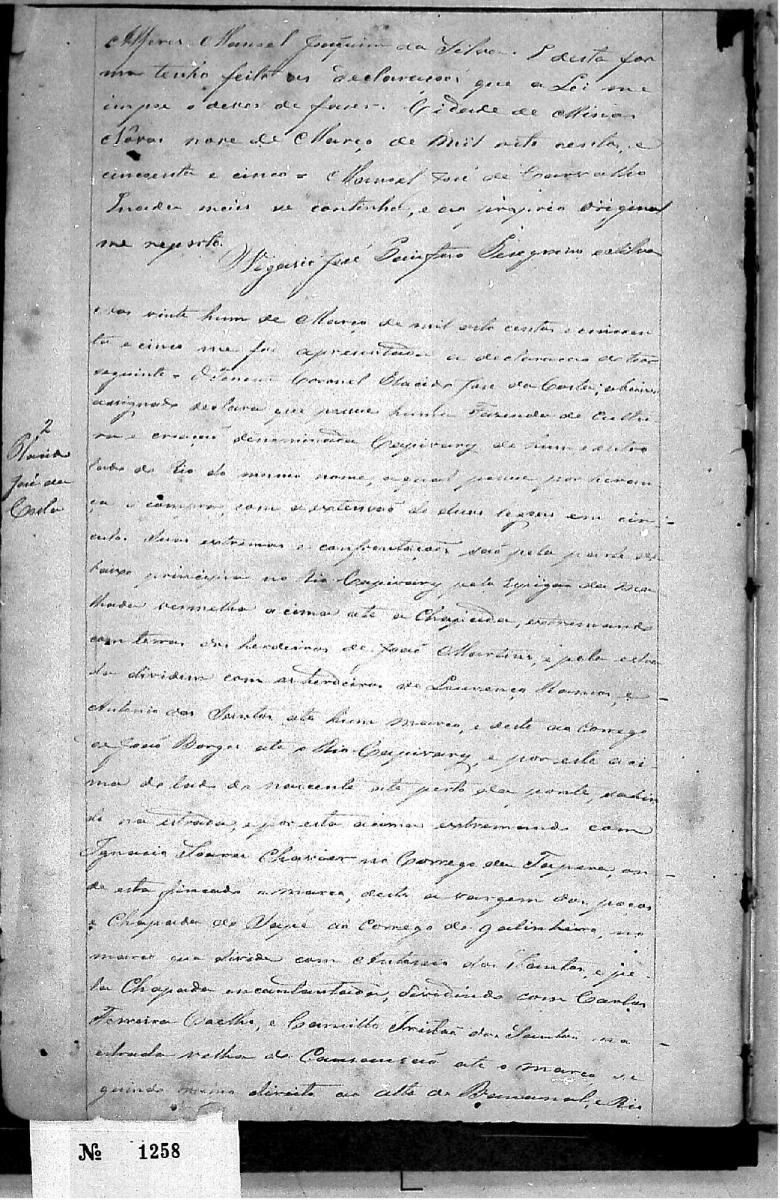 Alferes Manoel Joaquim da Silva. E desta for
ma tenho feito as declaraçoes que a Lei me
impoe o dever de fazer. Cidade de Minas
Novas nove de Março de mil oito centos, e
cincoenta e cinco = Manoel José de Carvalho
E nada mais se continha, e ao proprio original
me reporto.
Vigario José
Aos vinte hum de Março de mil oito centos e cincoen
ta e cinco me foi apresentada a declaracao do teor
seguinte = O Tenente Coronel Placido José da Costa, abaixo
assignado declara que possue huma Fazenda de cultu
ra e criação denominada Capivary de hum e outro
lado do Rio do mesmo nome, a qual possue por heran
ça e compra, com a extensão de duas legoas em cir
culo. Suas extremas e confrontações são pela parte de
baixo, principia no Rio Capivary, pelo Espigão da
vermelha acima até a Chapada, extremando
com terras dos herdeiros de José Martins, e pela estra
da dividem com os herdeiros de Lourenço Ramos, e
Antonio dos Santos até hum marco, e deste ao Corrego
de José Borges até o Rio Capivary, e por este aci
ma do lado do nascente até perto da ponte, sahin
do na estrada, e por esta acima extremando com
Ignacio Soares Chavier no Corrego da Tapera, on
de esta fincado o marco, deste a vargem dos poços
e Chapada do Sapé ao Corrego do Galinheiro, no
marco que divide com Antonio dos Santos, e pe
la Chapada dividindo com Carlos
Ferreira Coelho, e Camillo dos Santos na
estrada velha do até o marco se
guindo rumo direito ao alto do Bananal, e Rio
2
Placido
José da
Costa
Nº 1258